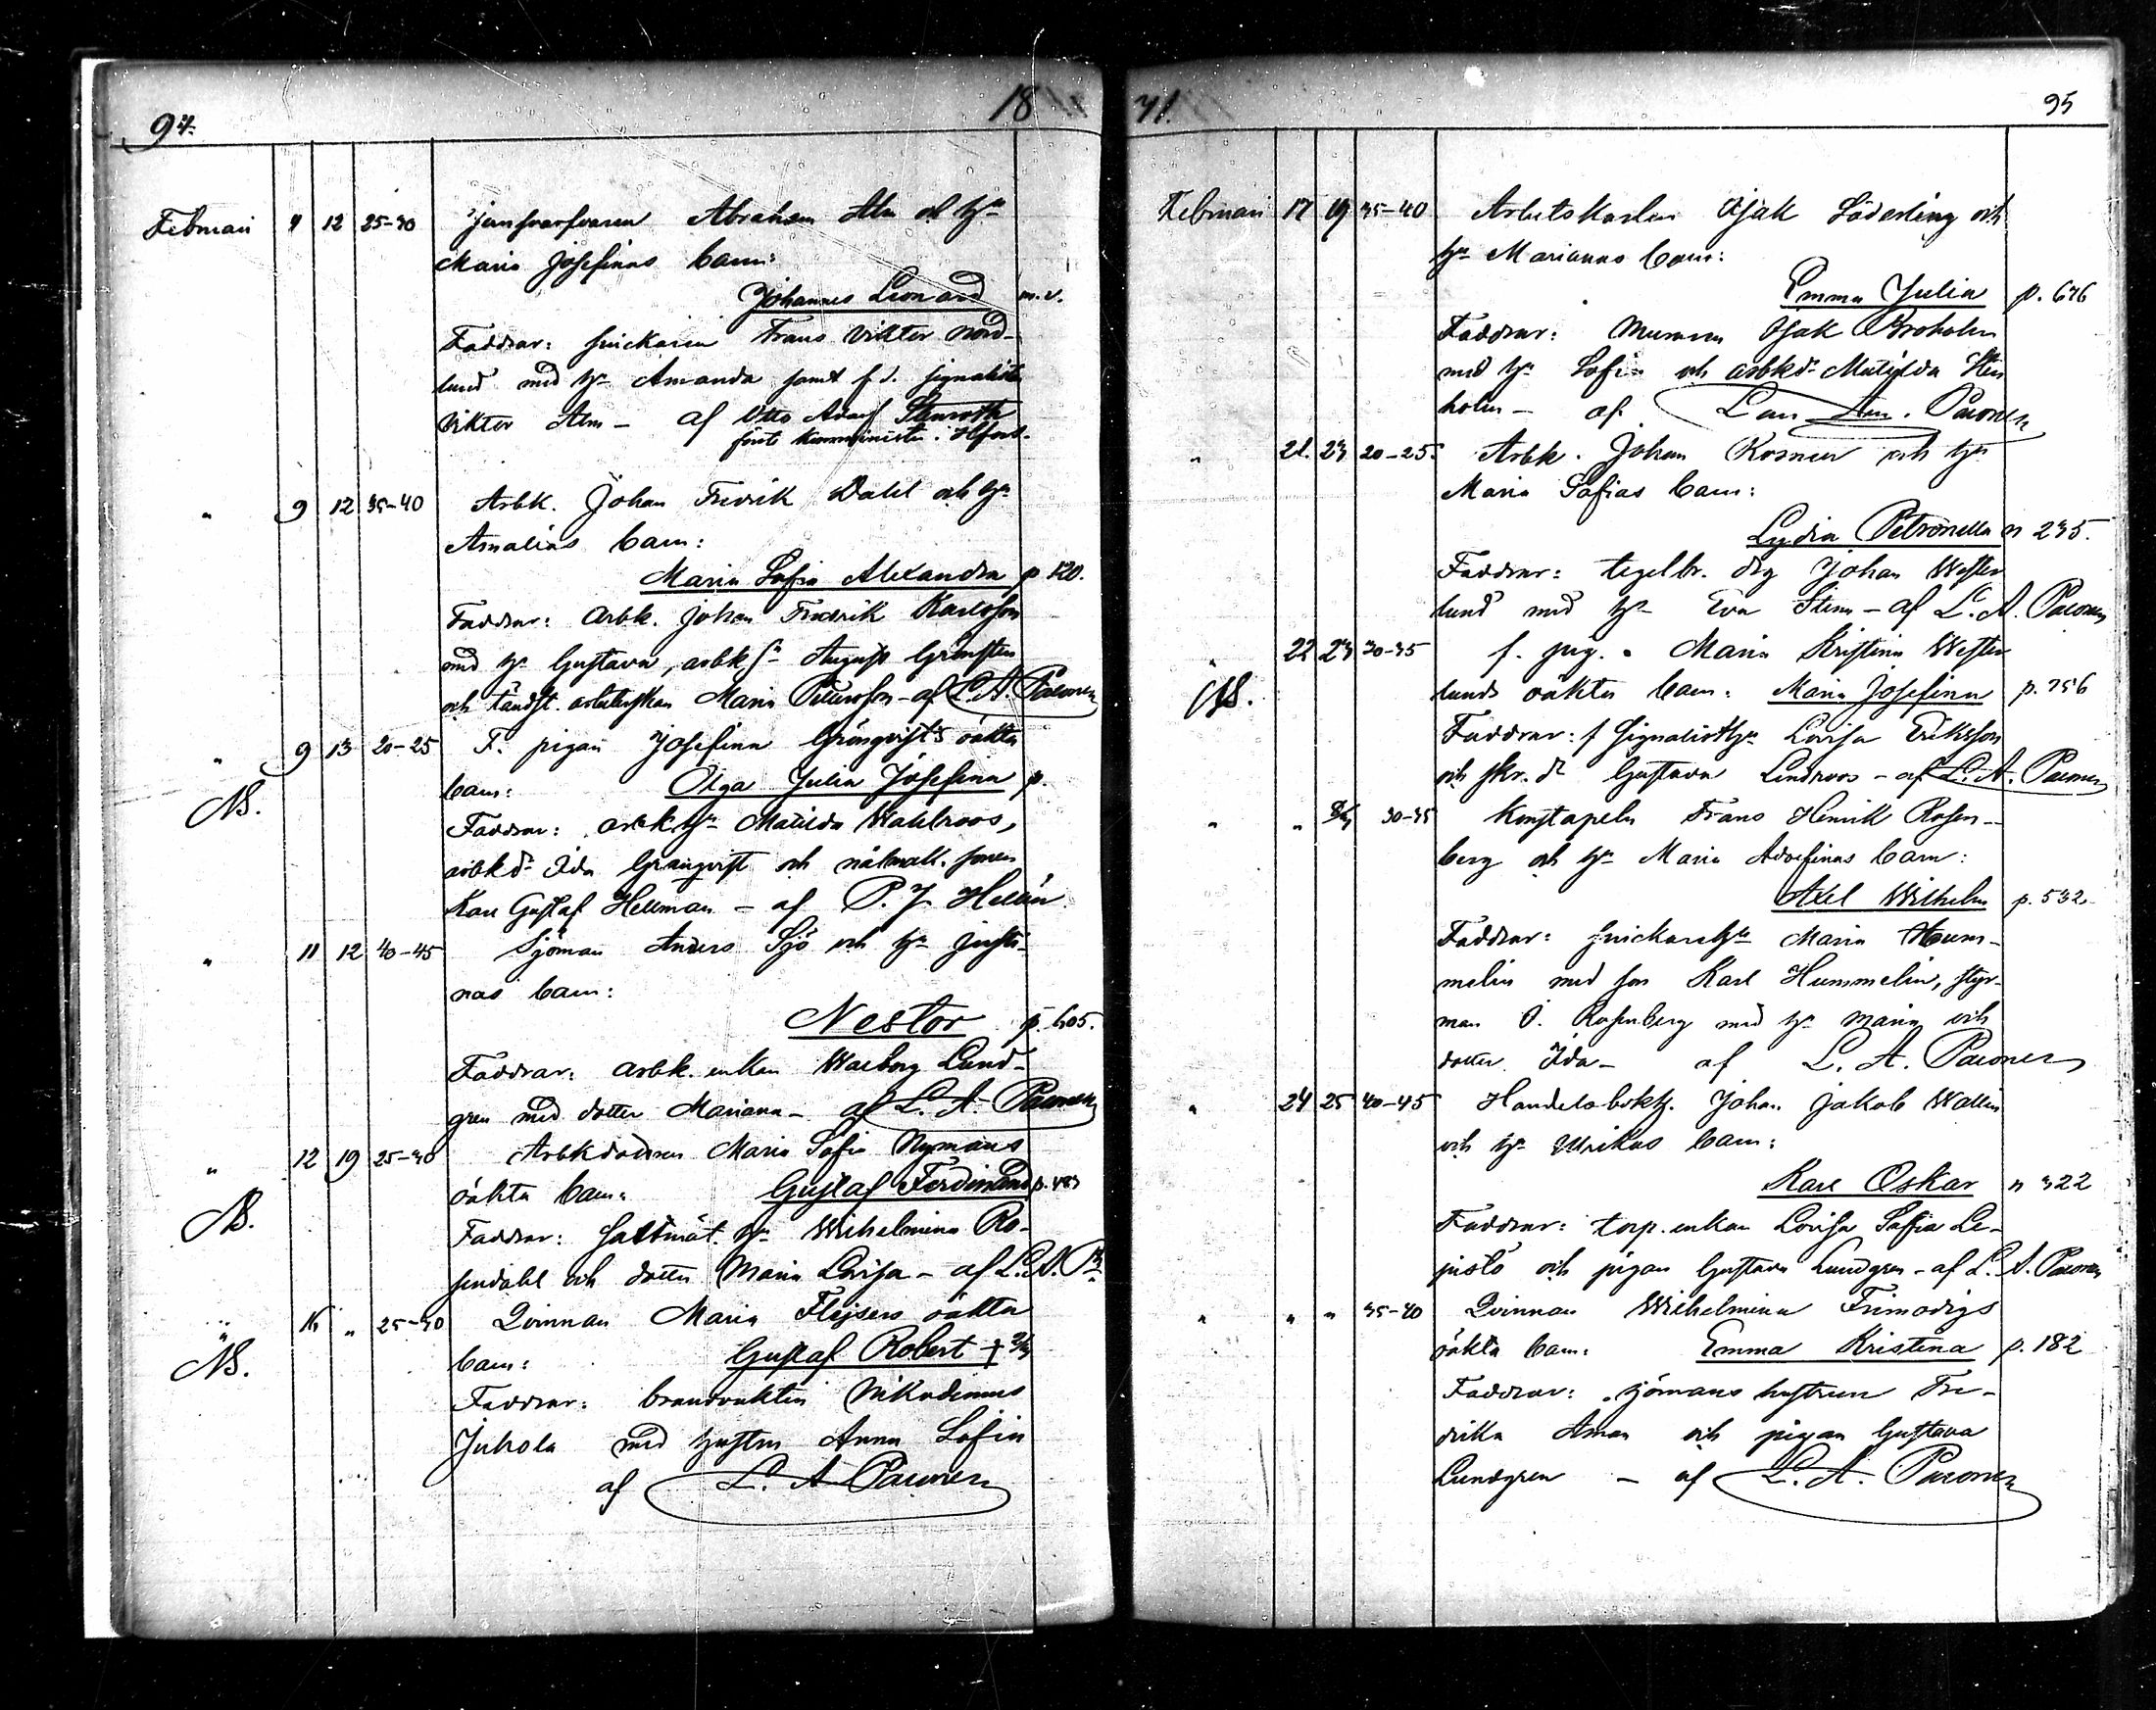 94.
18
Februari 4 12 25-30 Abraham Alm och h:u
Maria Josefinas barn:
Johannes Leonard m.v.
Faddrar: snickaren Frans Viktor Nord-
lund med h:u Amanda samt f.d. signalisten
Viktor Alm – af Otto Adolf Stenroth
" 9 12 35-40 Arbk. Johan Fredrik Dahl och h:u
Amalias barn:
Maria Sofia Alexandra p 120.
Faddrar: arbk. Johan Fredrik Karlsson
med h:u Gustava, arbks:n August Grönsten
och tändst. arbeterskan Maria Petersson – af L. A. Paronen
" 9 13 20-25 F. pigan Josefina Grönqvists oäkta
NB.
barn: Olga Julia Josefina p.
Faddrar: arbkh:u Matilda Wahlroos,
arbkd:r Ida Granqvist och
Karl Gustaf Hellman – af P. J. Hellén
" 11 12 40-45 Sjöman Anders Sjö och h:u Justi-
nas barn:
Nestor p. 605.
Faddrar: arbk. enkan Walborg Lund-
gren med dotter Mariana – af L. A. Paronen
" 12 19 25-30 Arbkdottren Maria Sofia Nymans
NB.
oäkta barn: Gustaf Ferdinand p. 483
Faddrar: h:u Wilhelmina Ro-
sendahl och dotter Maria Lovisa – af L. A. P:n
" 16 " 25-30 Qvinnan Maria Flejsers oäkta
NB.
barn: Gustaf Robert +
Faddrar: brandvakten Nikodemus
Juhola med hustru Anna Sofia
af L. A. Paronen
71.
95
Februari 17 19 35-40 Arbetskarlen Isak Söderling och
h:u Marianas barn:
Emma Julia p. 676
Faddrar: Muraren Isak Broholm
med h:u Sofia och arbkd:r Matilda Sten
holm – af Paronen
" 21. 23 20-25 Arbk. Johan Rosmer och h:u
Maria Sofias barn:
Lydia Petronella n 235.
Faddrar: tegelbr. drg Johan Wester
lund med h:u Eva Stina – af L. A. Paronen
" 22 23 30-35 f. pig. Maria Kristina Wester
NB.
lunds oäkta barn: Maria Josefina p. 756
Faddrar: f signalisth:u Lovisa Eriksson
och skr. d:r Gustava Lindroos – af L. A. Paronen
" " 30-35 Konstapeln Frans Henrik Rosen-
berg och h:u Maria Adolfinas barn:
Axel Wilhelm p. 532.
Faddrar: snickareh:u Maria Hum-
melin med son Karl Hummelin, styr-
man O. Rosenberg med h:u Maria och
dotter Ida – af L. A. Paronen
" 24 25 40-45 Handelsbokh. Johan Jakob Wallin
och h:u Ulrikas barn:
Karl Oskar n 322
Faddrar: torp. enkan Lovisa Sofia Le-
pistö och pigan Gustava Lundgren – af L. A. Paronen
" " " 35-40 Qvinnan Wilhelmina Frimodigs
oäkta barn: Emma Kristina p. 182
Faddrar: sjömans hustrun Fre-
drika Aman och pigan Gustava
Lundgren – af L. A. Paronen